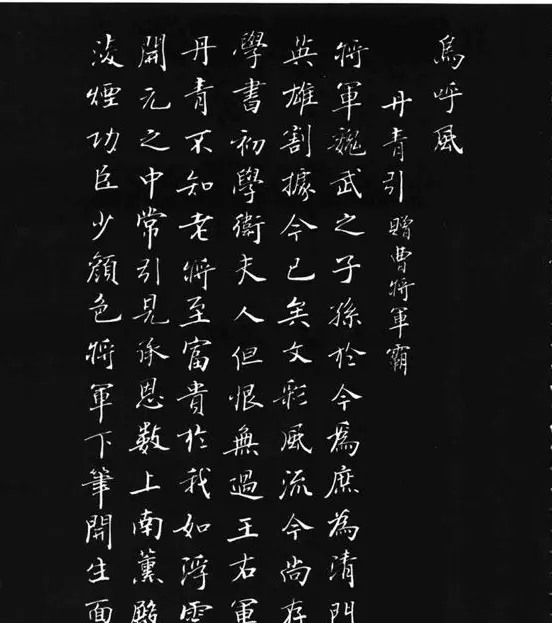 烏呼風
丹青引贈曹將軍霸
將軍魏武之子孫於今爲庶為清門
英雄割據今已矣文彩風流今尚存
學書初學衛夫人但恨無過王右軍
丹青不知老將至富貴於我如浮雲
開元之中常引見承恩數上南薰殿
淩煙功臣少顏色將軍下筆開生面